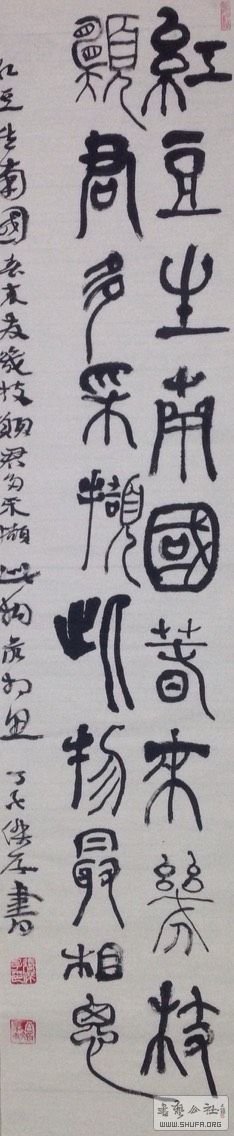 紅豆生南國春來幾枝
願君多采擷此物最相思
紅豆生南國春來發幾枝願君多采擷此物最相思
書
書藝公社
WWW.SHUFA.ORG